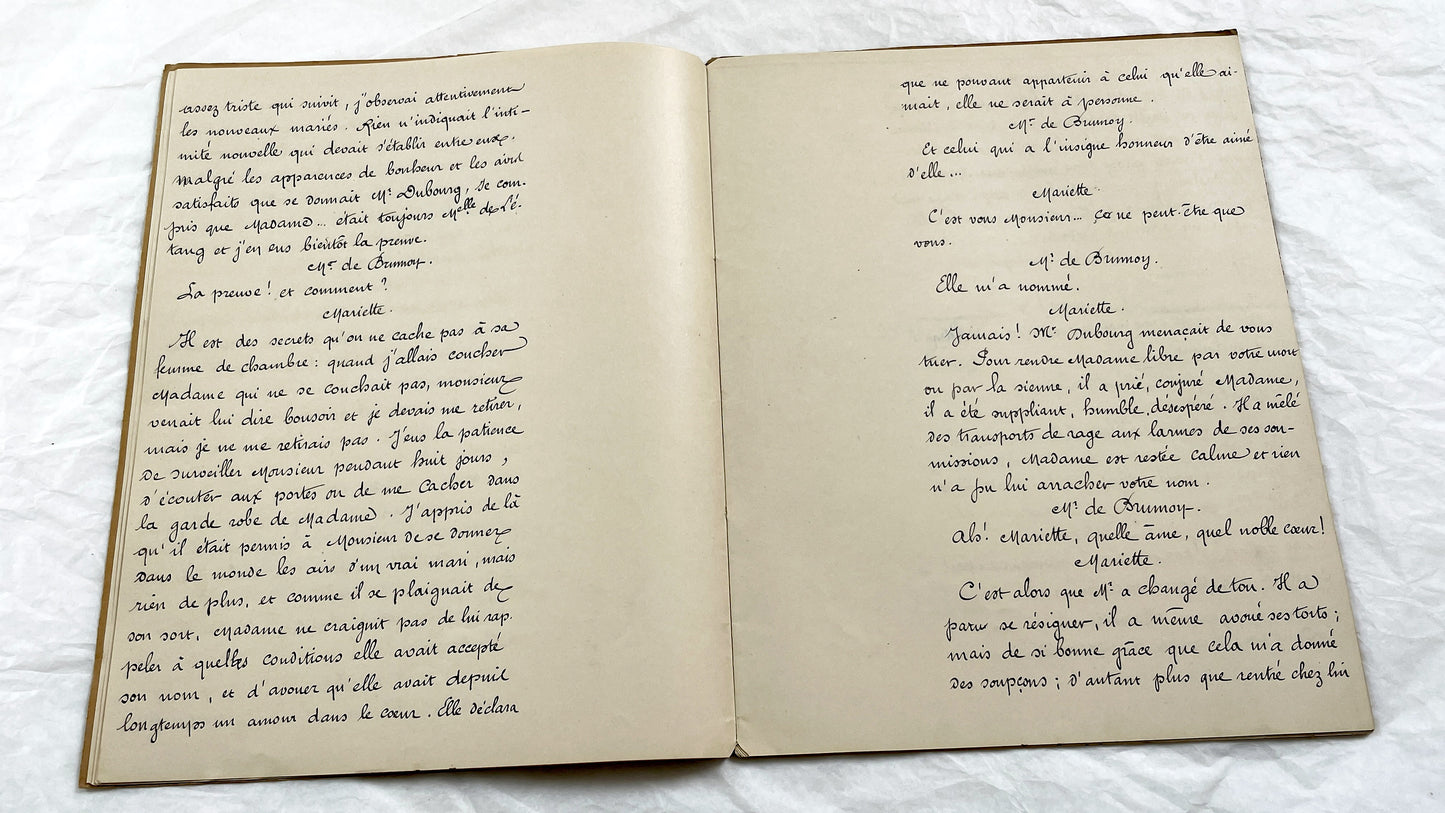 assez triste qui suivit, j'observai attentivement
les nouveaux mariés. Rien n'indiquait l'inti-
mité nouvelle qui devait s'établir entre eux.
Malgré les apparences de bonheur et les airs
satisfaits que se donnait Mr Dubourg, je com-
pris que Madame... était toujours Melle de L'é-
tang et j'en eus bientôt la preuve.
Mr de Brunoy.
La preuve! et comment?
Mariette.
Il est des secrets qu'on ne cache pas à sa
femme de chambre: quand j'allais coucher
Madame qui ne se couchait pas, monsieur
venait lui dire bonsoir et je devais me retirer,
mais je ne me retirais pas. J'eus la patience
de surveiller Monsieur pendant huit jours,
d'écouter aux portes ou de me cacher dans
la garde robe de Madame. J'appris de là
qu'il était permis à Monsieur de se donner
dans le monde les airs d'un vrai mari, mais
rien de plus, et comme il se plaignait de
son sort, Madame ne craignit pas de lui rap-
peler à quelles conditions elle avait accepté
son nom, et d'avouer qu'elle avait depuis
longtemps un amour dans le cœur. Elle déclara
que ne pouvant appartenir à celui qu'elle ai-
mait, elle ne serait à personne.
Mr de Brunoy.
Et celui qui a l'insigne honneur d'être aimé
d'elle...
Mariette
C'est vous Monsieur... ce ne peut-être que
vous.
Mr de Brunoy.
Elle m'a nommé.
Mariette.
Jamais! Mr Dubourg menaçait de vous
tuer. Pour rendre Madame libre par votre mort
ou par la sienne, il a prié, conjuré Madame,
il a été suppliant, humble, désespéré. Il a mêlé
des transports de rage aux larmes de ses sou-
missions, Madame est restée calme et rien
n'a pu lui arracher votre nom.
Mr de Brunoy.
Ah! Mariette, quelle âme, quel noble cœur!
Mariette.
C'est alors que Mr a changé de ton. Il a
paru se résigner, il a même avoué ses torts;
mais de si bonne grâce que cela m'a donné
des soupçons; d'autant plus que rentré chez lui